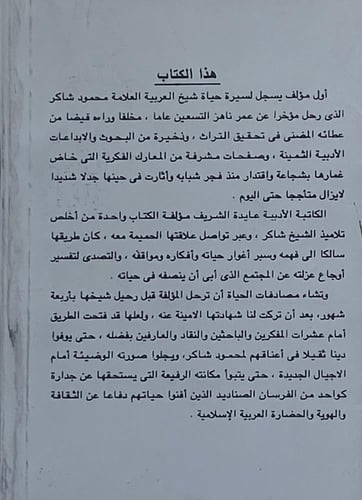 هذا الكتاب
أول مؤلف يسجل لسيرة حياة شيخ العربية العلامة محمود شاكر
الذى رحل مؤخرا عن عمر ناهز التسعين عاما ، مخلفا وراءه فيضا من
عطائه المضنى فى تحقيق التراث ، وذخيرة من البحوث والابداعات
الأدبية الثمينة ، وصفحات مشرفة من المعارك الفكرية التى خاض
غمارها بشجاعة واقتدار منذ فجر شبابه وأثارت فى حينها جدلا شديدا
لايزال متأججا حتى اليوم .
الكاتبة الأدبية عايدة الشريف مؤلفة الكتاب واحدة من أخلص
تلاميذ الشيخ شاكر ، وعبر تواصل علاقتها الحميمة معه ، كان طريقها
سالكا الى فهمه وسبر أغوار حياته وأفكاره ومواقفه ، والتصدى لتفسير
أوجاع عزلته عن المجتمع الذى أبى أن ينصفه فى حياته .
وتشاء مصادفات الحياة أن ترحل المؤلفة قبل رحيل شيخها بأربعة
شهور، بعد أن تركت لنا شهادتها الامينة عنه ، ولعلها قد فتحت الطريق
أمام عشرات المفكرين والباحثين والنقاد والعارفين بفضله ، حتى يوفوا
دينا ثقيلا فى أعناقهم لمحمود شاكر، ويجلوا صورته الوضيئة أمام
الاجيال الجديدة ، حتى يتبوأ مكانته الرفيعة التى يستحقها عن جدارة
كواحد من الفرسان الصناديد الذين أفنوا حياتهم دفاعا عن الثقافة
والهوية والحضارة العربية الإسلامية .